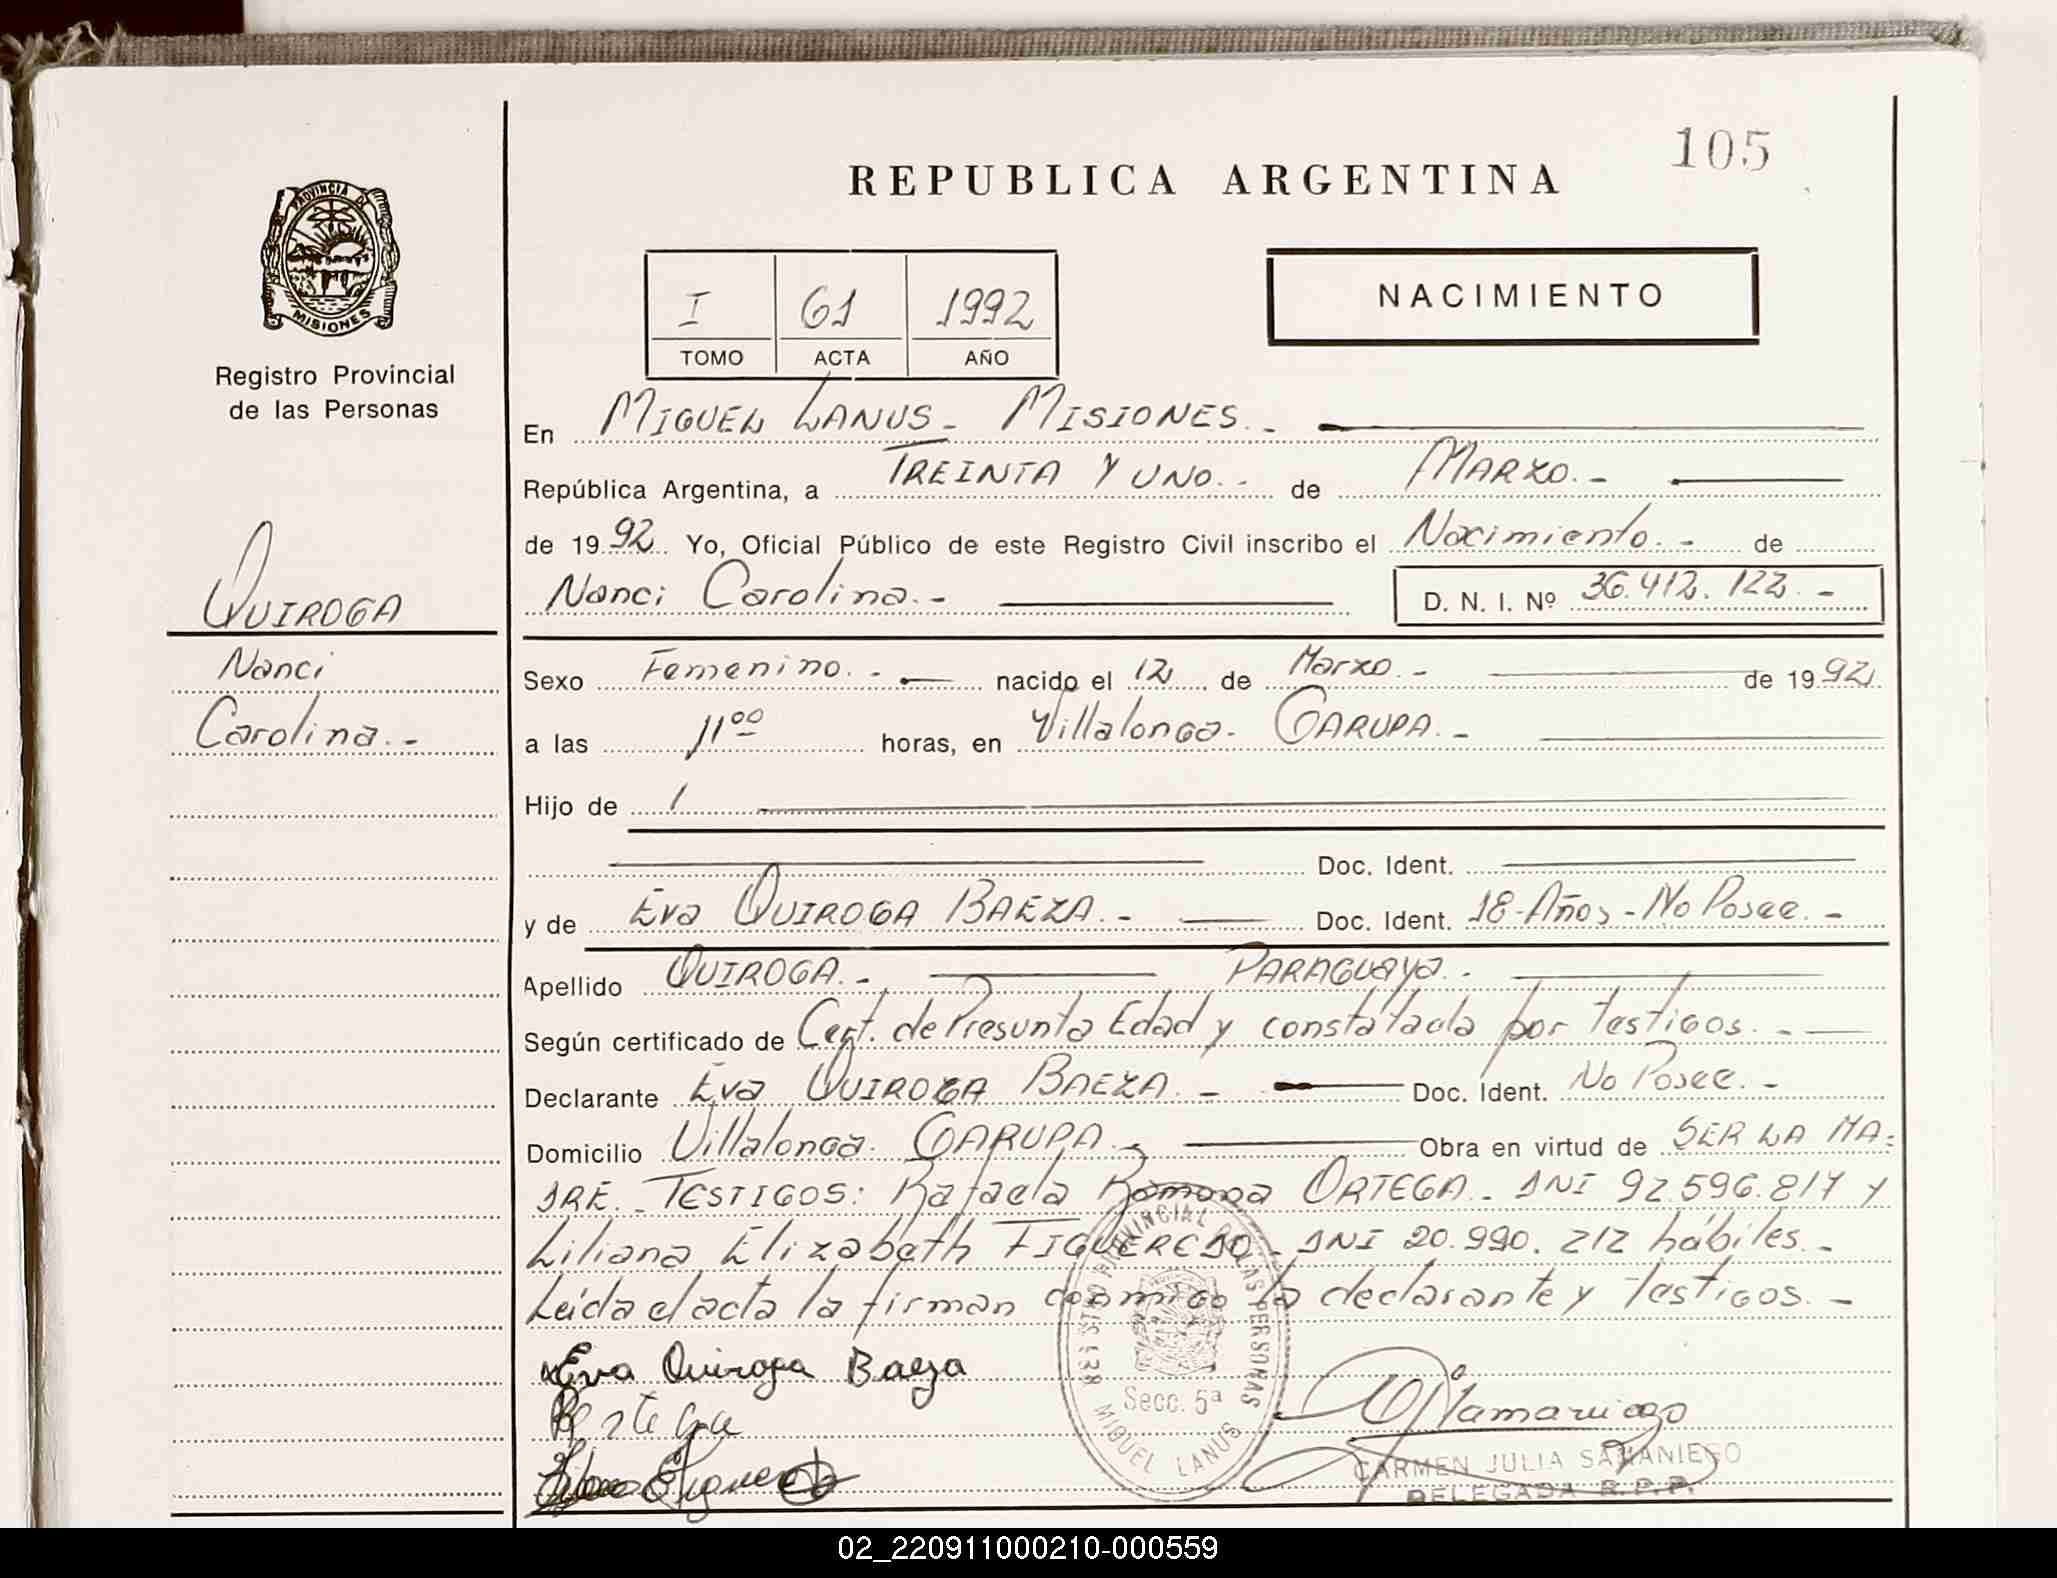 105
REPUBLICA ARGENTINA
PROVINCIA DE
MISIONES
Registro Provincial
de las Personas
NACIMIENTO
I 61 1992
TOMO ACTA AÑO
En MIGUEL LANUS - MISIONES. -
República Argentina, a TREINTA Y UNO. - de MARZO. -
de 1992. Yo, Oficial Público de este Registro Civil inscribo el Nacimiento. - de
Nanci Carolina. - D. N. I. Nº 36.412.122. -
QUIROGA
Nanci
Carolina. -
Sexo Femenino. - nacido el 12 de Marzo. - de 1992
a las 11⁰⁰ horas, en Villalonga. GARUPA. -
Hijo de /
Doc. Ident.
y de Eva QUIROGA BAEZA. - Doc. Ident. 18-Años - No Posee. -
Apellido QUIROGA. - PARAGUAYA. -
Según certificado de Cert. de Presunta Edad y constatada por testigos. -
Declarante Eva QUIROGA BAEZA. - Doc. Ident. No Posee. -
Domicilio Villalonga. GARUPA. - Obra en virtud de SER LA MA=
DRE. - TESTIGOS: Rafaela Ramona ORTEGA - DNI 92.596.817 y
Liliana Elizabeth FIGUEREDO - DNI 20.990.212 hábiles. -
Leída el acta la firman conmigo la declarante y testigos. -
Eva Quiroga Baeza
REGISTRO PROVINCIAL DE LAS PERSONAS
Secc. 5ª
MIGUEL LANUS
CARMEN JULIA SAMANIEGO
DELEGADA R.P.P.
02_220911000210-000559